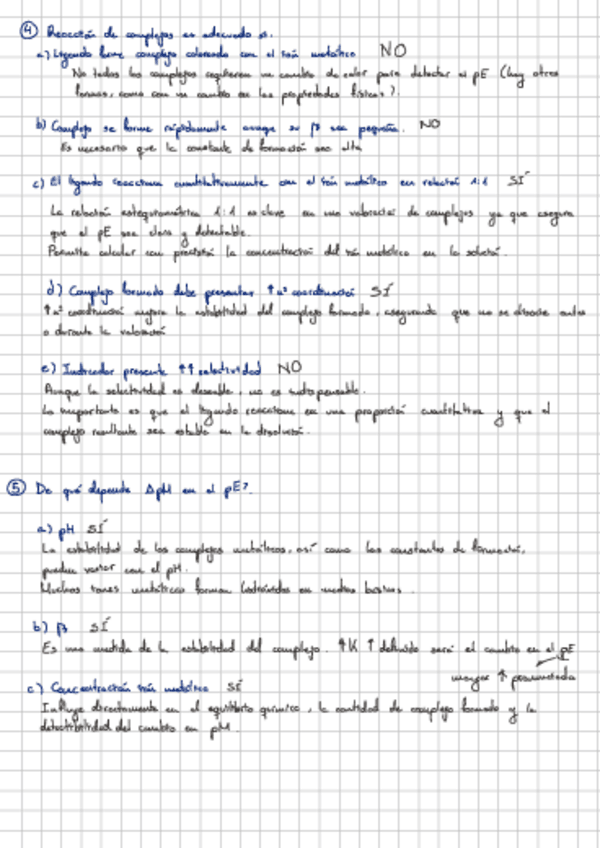 ④ Reacción de complejos es adecuada si.
a) Ligando forme complejo coloreado con el ión metálico NO
No todos los complejos requieren un cambio de color para detectar el pE (hay otras
formas, como con un cambio en las propiedades físicas).
b) Complejo se forme rápidamente aunque su β sea pequeña. NO
Es necesario que la constante de formación sea alta
c) El ligando reacciona cuantitativamente con el ión metálico en relación 1:1 SÍ
La relación estequiométrica 1:1 es clave en una valoración de complejos ya que asegura
que el pE sea claro y detectable.
Permite calcular con precisión la concentración del ión metálico en la solución.
d) Complejo formado debe presentar ↑ nº coordinación SÍ
↑ nº coordinación mejora la estabilidad del complejo formado, asegurando que no se disocie antes
o durante la valoración
e) Indicador presente ↑↑ selectividad NO
Aunque la selectividad es deseable, no es indispensable.
Lo importante es que el ligando reaccione en una proporción cuantitativa y que el
complejo resultante sea estable en la disolución.
⑤ De qué depende ΔpM en el pE?
a) pH SÍ
La estabilidad de los complejos metálicos, así como las constantes de formación,
pueden variar con el pH.
Muchos iones metálicos forman hidróxidos en medios básicos.
b) β SÍ
Es una medida de la estabilidad del complejo. ↑K ↑ definido será el cambio en el pE
mayor ↑ pronunciada
c) Concentración ión metálico SÍ
Influye directamente en el equilibrio químico, la cantidad de complejo formado y la
detectibilidad del cambio en pM